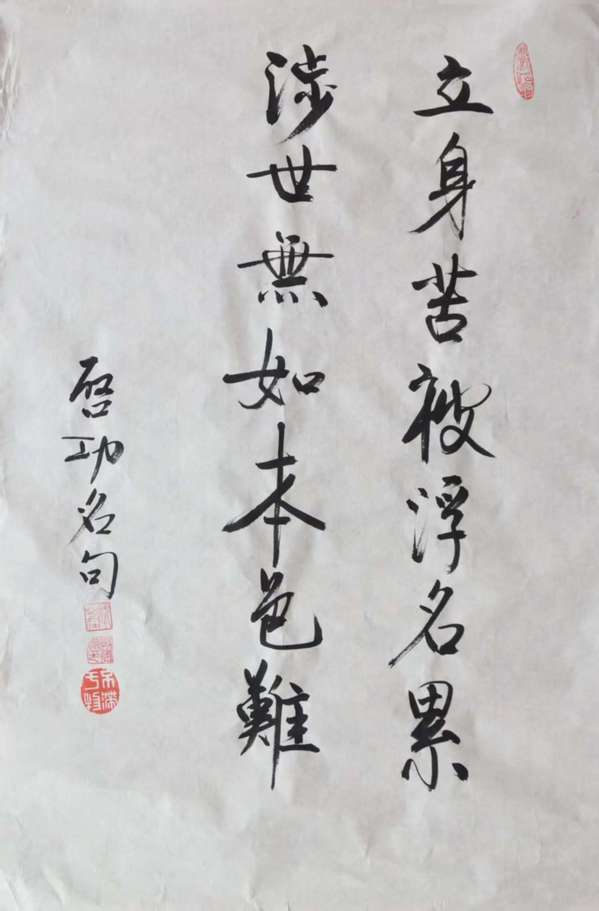 立身苦被浮名累
涉世無如本色難
啓功名句